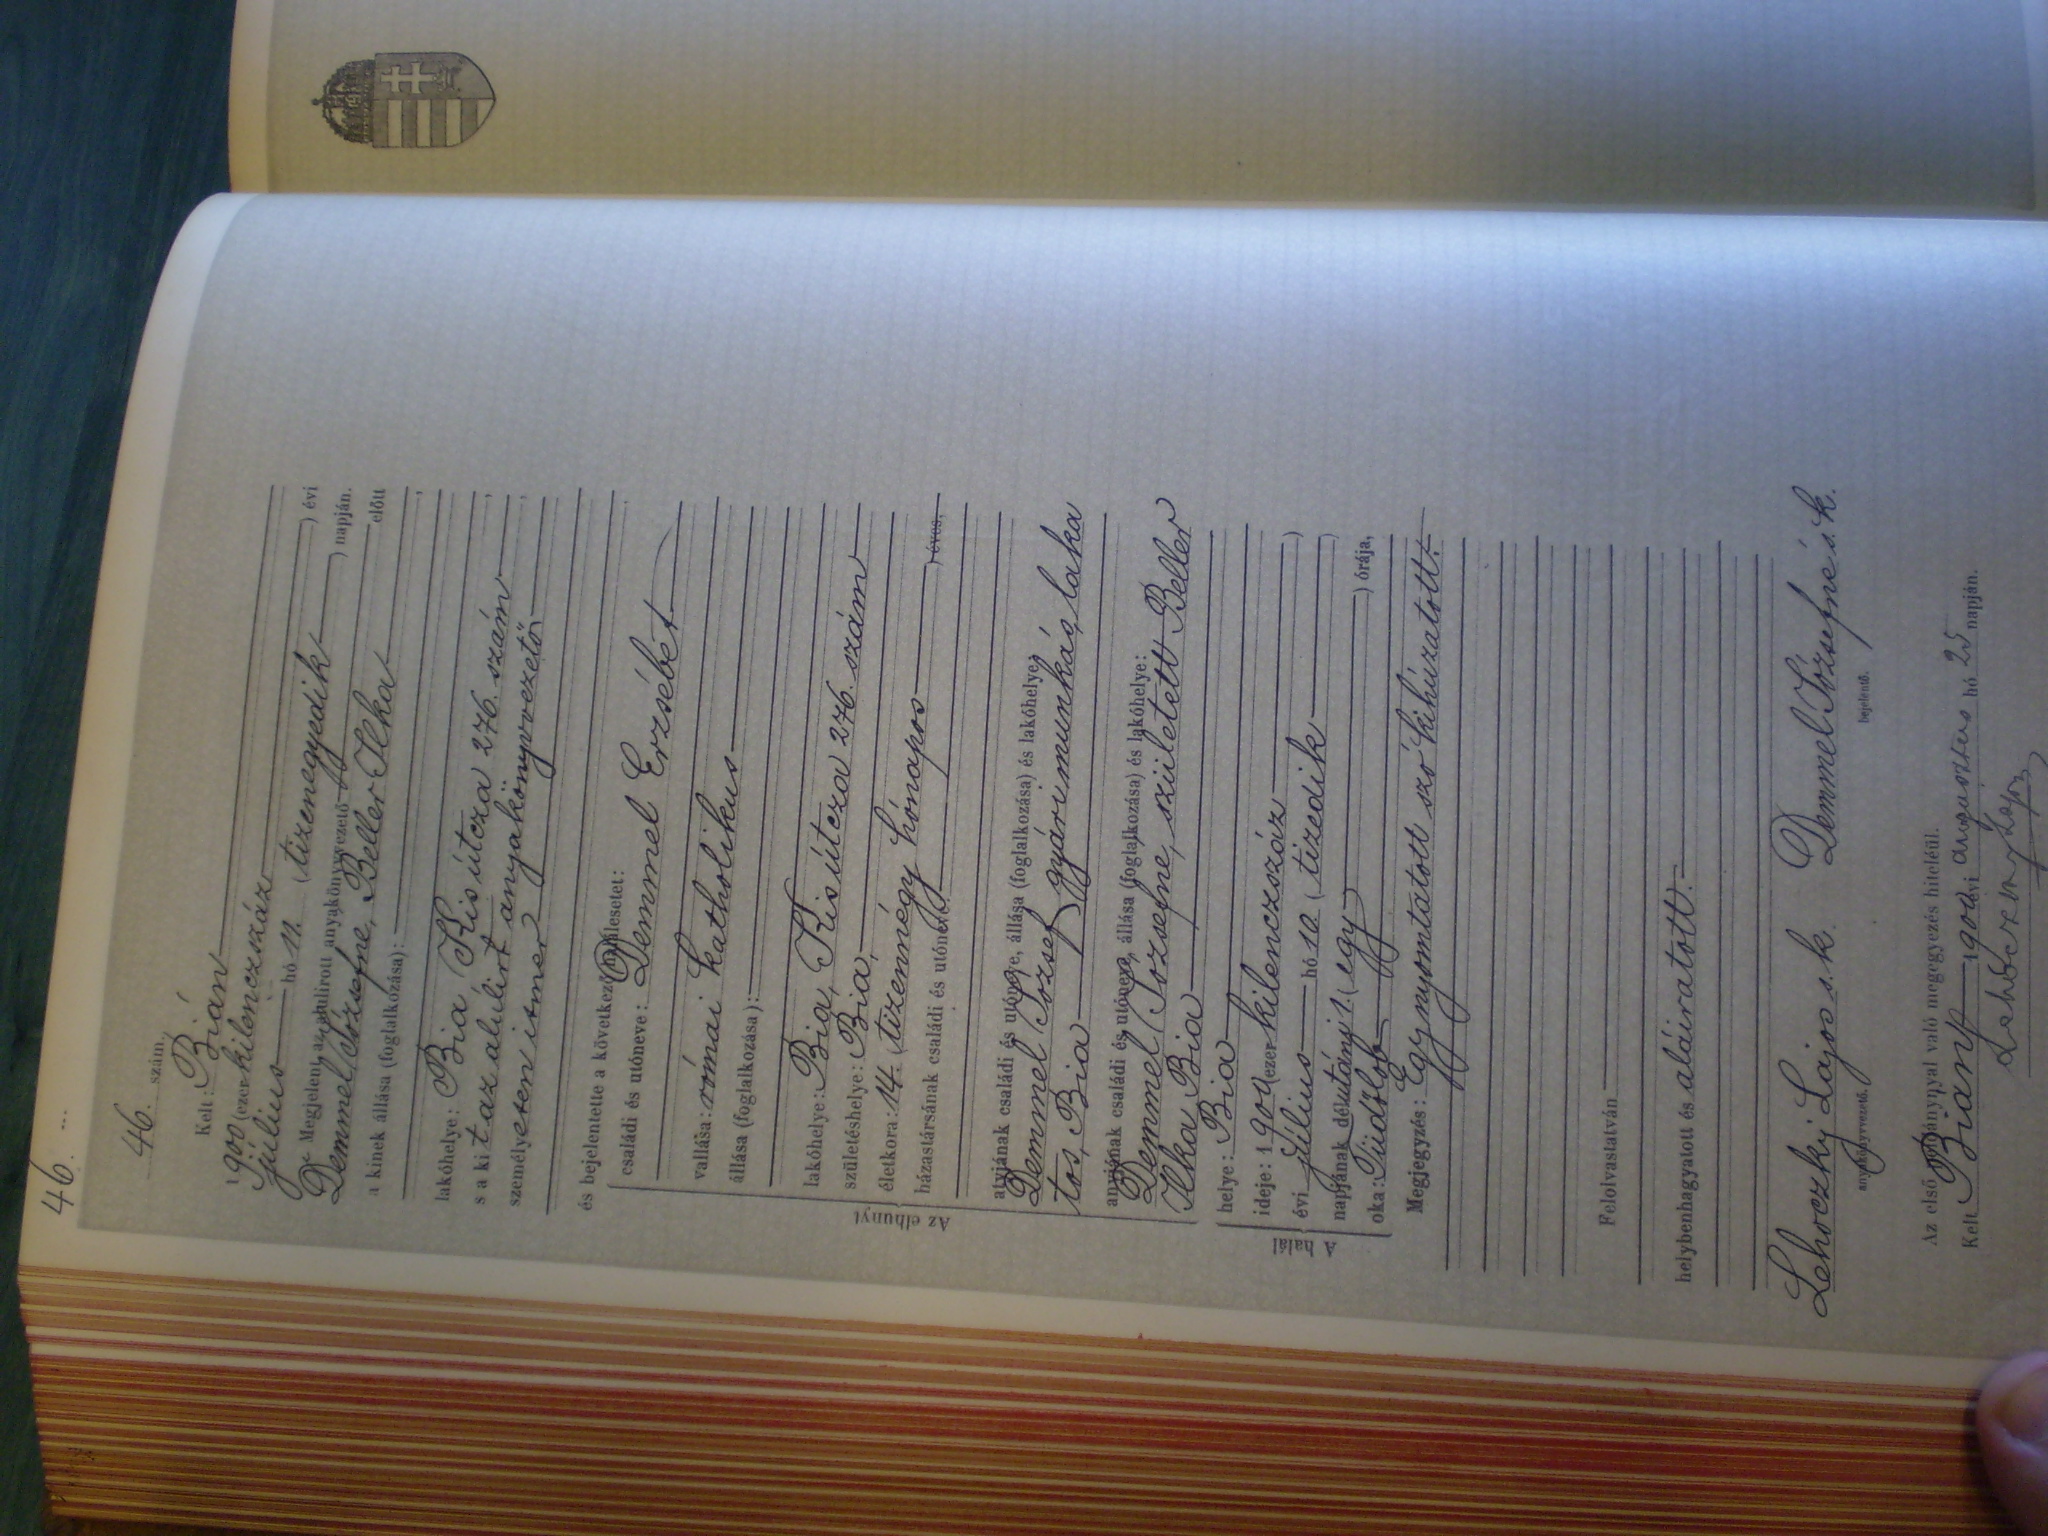 46. ...
46. szám.
Kelt: Bián
1900 (ezer kilenczszáz
július hó 11. (tizenegyedik ) évi
) napján.
Megjelent az alulírott anyakönyvvezető előtt
Demmel Józsefné, Beller Ilka
a kinek állása (foglalkozása):
lakóhelye: Bia, Kis útcza 276. szám,
s a kit az alulírt anyakönyvvezető
személyesen ismer,
és bejelentette a következő halálesetet:
Az elhunyt
családi és utóneve: Demmel Erzsébet
vallása: római katholikus
állása (foglalkozása):
lakóhelye: Bia, Kis útcza 276. szám
születéshelye: Bia,
életkora: 14. (tizennégy hónapos ) éves,
házastársának családi és utóneve:
atyjának családi és utóneve, állása (foglalkozása) és lakóhelye:
Demmel József gyári munkás, laka
tos, Bia
anyjának családi és utóneve, állása (foglalkozása) és lakóhelye:
Demmel Józsefné, született Beller
Ilka Bia
A halál
helye: Bia
ideje: 1900 (ezer kilenczszáz )
évi július hó 10. (tizedik )
napjának délutánj 1. (egy ) órája,
oka: Tüdőlob
Megjegyzés: Egy nyomtatott szó kihúzatott.
Felolvastatván
helybenhagyatott és aláiratott.
Lehoczky Lajos s. k. Demmel Józsefné s. k.
anyakönyvvezető. bejelentő.
Az első példánynyal való megegyezés hiteléül.
Kelt Bián 1900 évi augusztus hó 25 napján.
Lehoczky Lajos